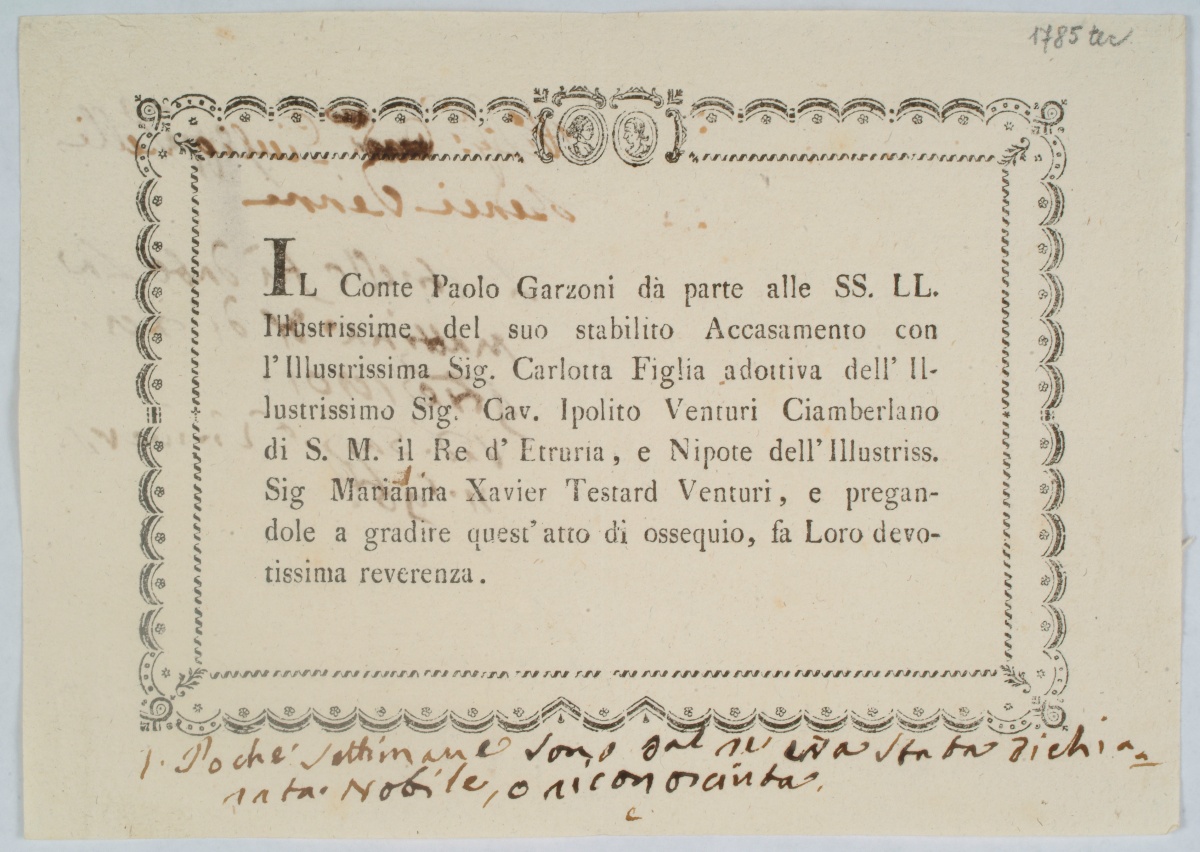 1785 ter
IL Conte Paolo Garzoni dà parte alle SS. LL.
Illustrissime del suo stabilito Accasamento con
l'Illustrissima Sig. Carlotta Figlia adottiva dell' Il-
lustrissimo Sig. Cav. Ipolito Venturi Ciamberlano
di S. M. il Re d' Etruria, e Nipote dell'Illustriss.
Sig Marianna Xavier Testard Venturi, e pregan-
dole a gradire quest' atto di ossequio, fa Loro devo-
tissima reverenza.
1. Poche settimane sono dal re era stata dichia-
rata Nobile, o riconosciuta.